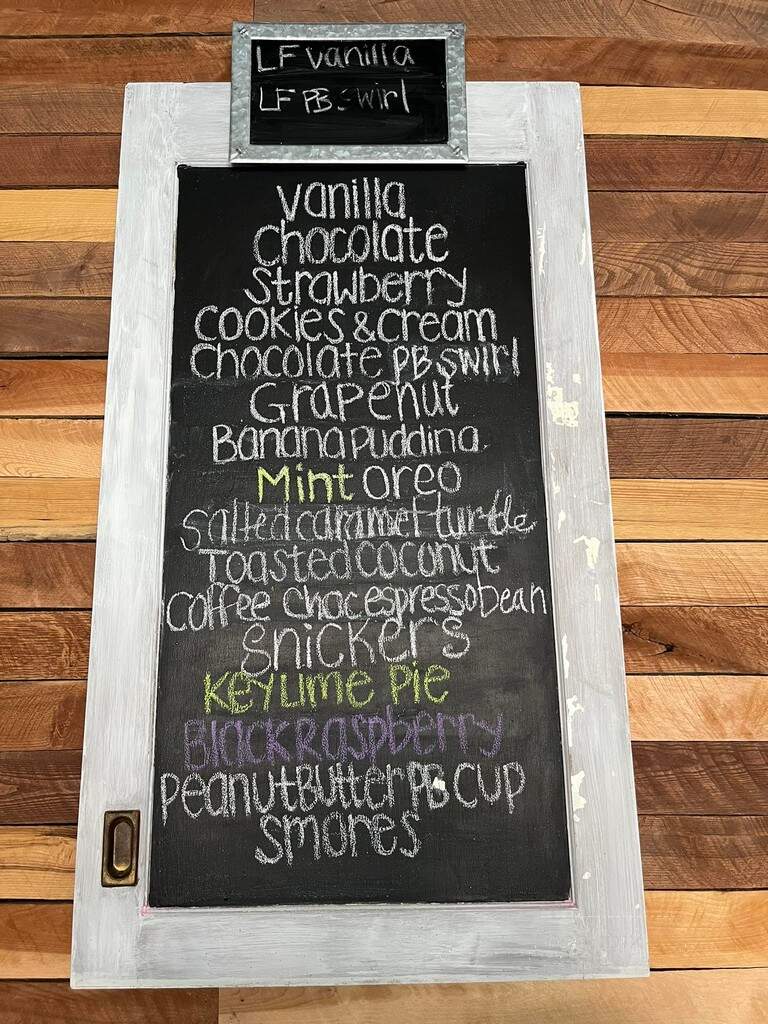 LF vanilla
LF PB swirl
vanilla
chocolate
strawberry
cookies & cream
chocolate PB swirl
Grapenut
Banana Pudding
Mint oreo
salted caramel turtle
Toasted coconut
coffee choc espresso bean
snickers
Key Lime Pie
Black Raspberry
Peanut Butter PB cup
smores